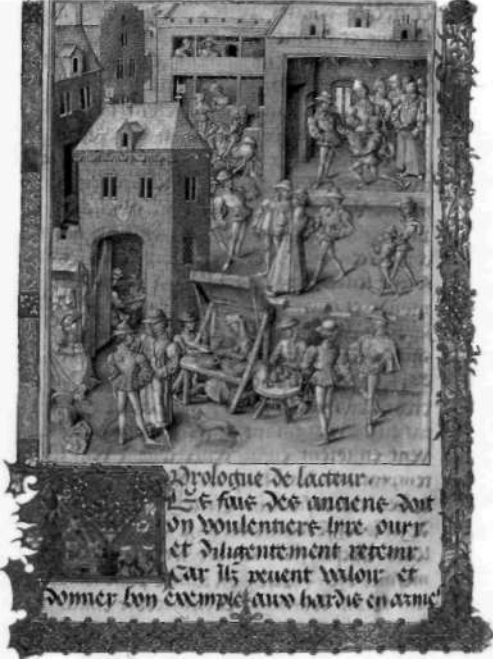 Prologue de lacteur
Es fais des anciens doit
on voulentiers lyre ouyr
et diligentement retenir
Car Ilz peuent valoir et
donner bon exemple aux hardis en arme